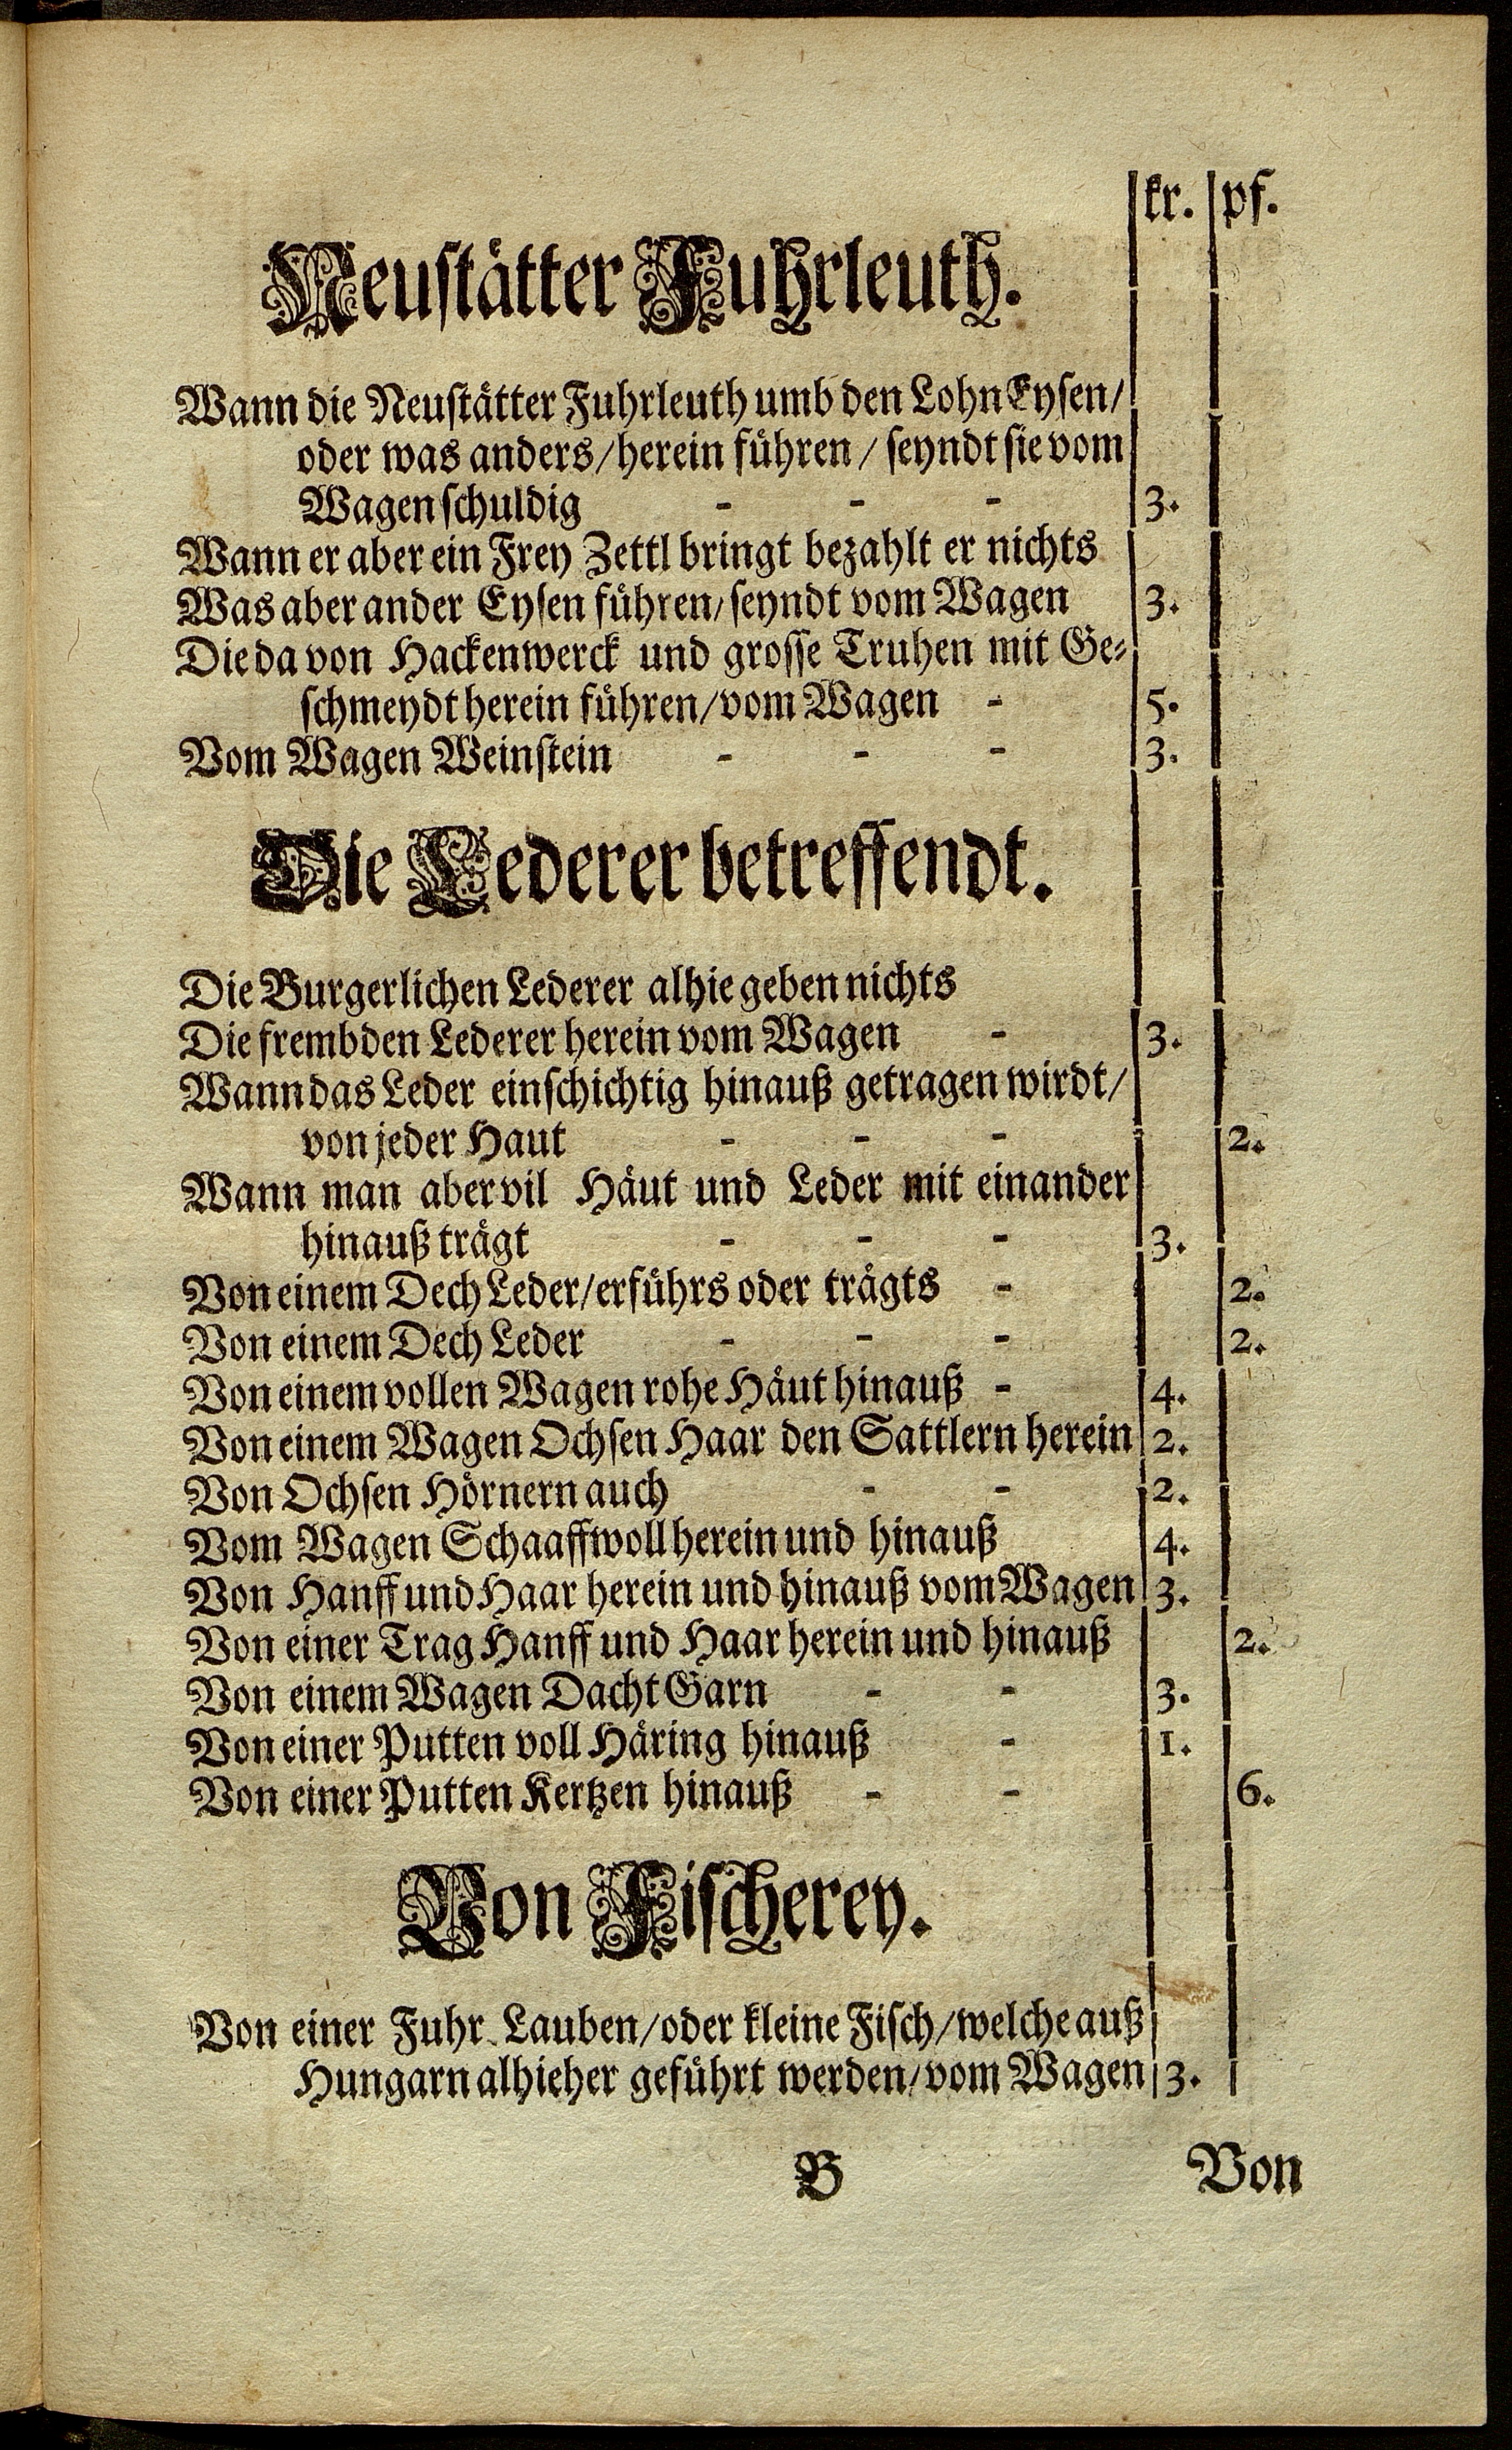 kr. pf.
Neustätter Fuhrleuth.
Wann die Neustätter Fuhrleuth umb den Lohn Eysen/
oder was anders/herein führen/ seyndt sie vom
Wagen schuldig - - - 3.
Wann er aber ein Frey Zettl bringt bezahlt er nichts
Was aber ander Eysen führen/seyndt vom Wagen 3.
Die da von Hackenwerck und grosse Truhen mit Ge⸗
schmeydt herein führen/vom Wagen - 5.
Vom Wagen Weinstein - - - 3.
Die Lederer betreffendt.
Die Burgerlichen Lederer alhie geben nichts
Die frembden Lederer herein vom Wagen - 3.
Wann das Leder einschichtig hinauß getragen wirdt/
von jeder Haut - - - 2.
Wann man aber vil Häut und Leder mit einander
hinauß trägt - - - 3.
Von einem Dech Leder/er führs oder trägts - 2.
Von einem Dech Leder - - - 2.
Von einem vollen Wagen rohe Häut hinauß - 4.
Von einem Wagen Ochsen Haar den Sattlern herein 2.
Von Ochsen Hörnern auch - - 2.
Vom Wagen Schaaffwoll herein und hinauß 4.
Von Hanff und Haar herein und hinauß vom Wagen 3.
Von einer Trag Hanff und Haar herein und hinauß 2.
Von einem Wagen Dacht Garn - - 3.
Von einer Putten voll Häring hinauß - 1.
Von einer Putten Kertzen hinauß - - 6.
Von Fischerey.
Von einer Fuhr Lauben/oder kleine Fisch/welche auß
Hungarn alhieher geführt werden/vom Wagen 3.
B Von